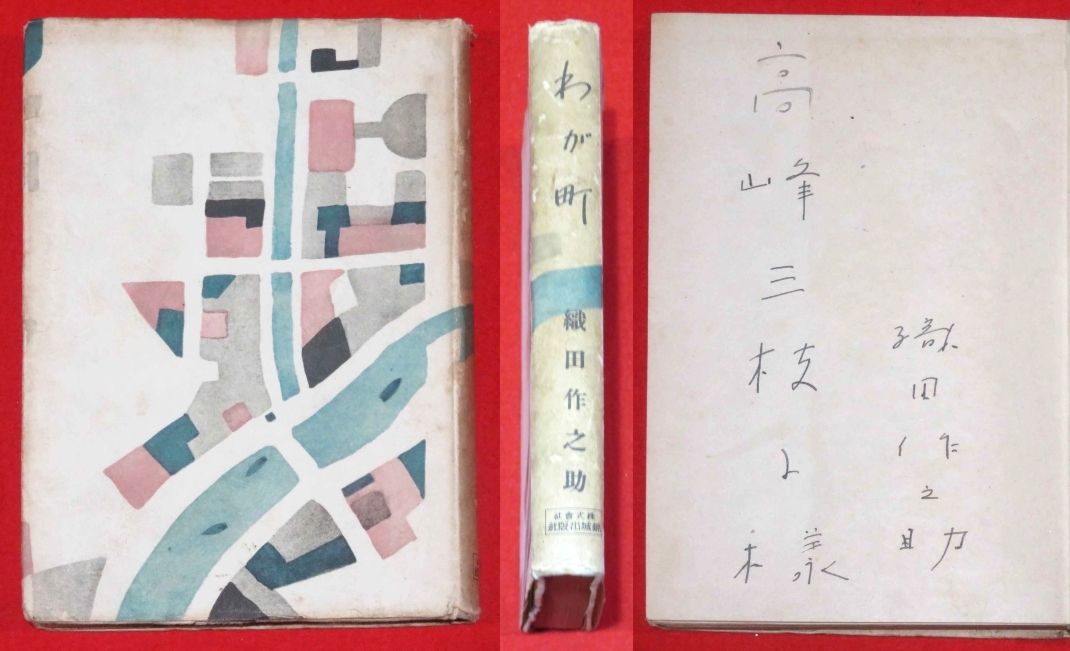 わが町
織田作之助
株式會社
錦城出版社
高峰三枝子様
織田作之助